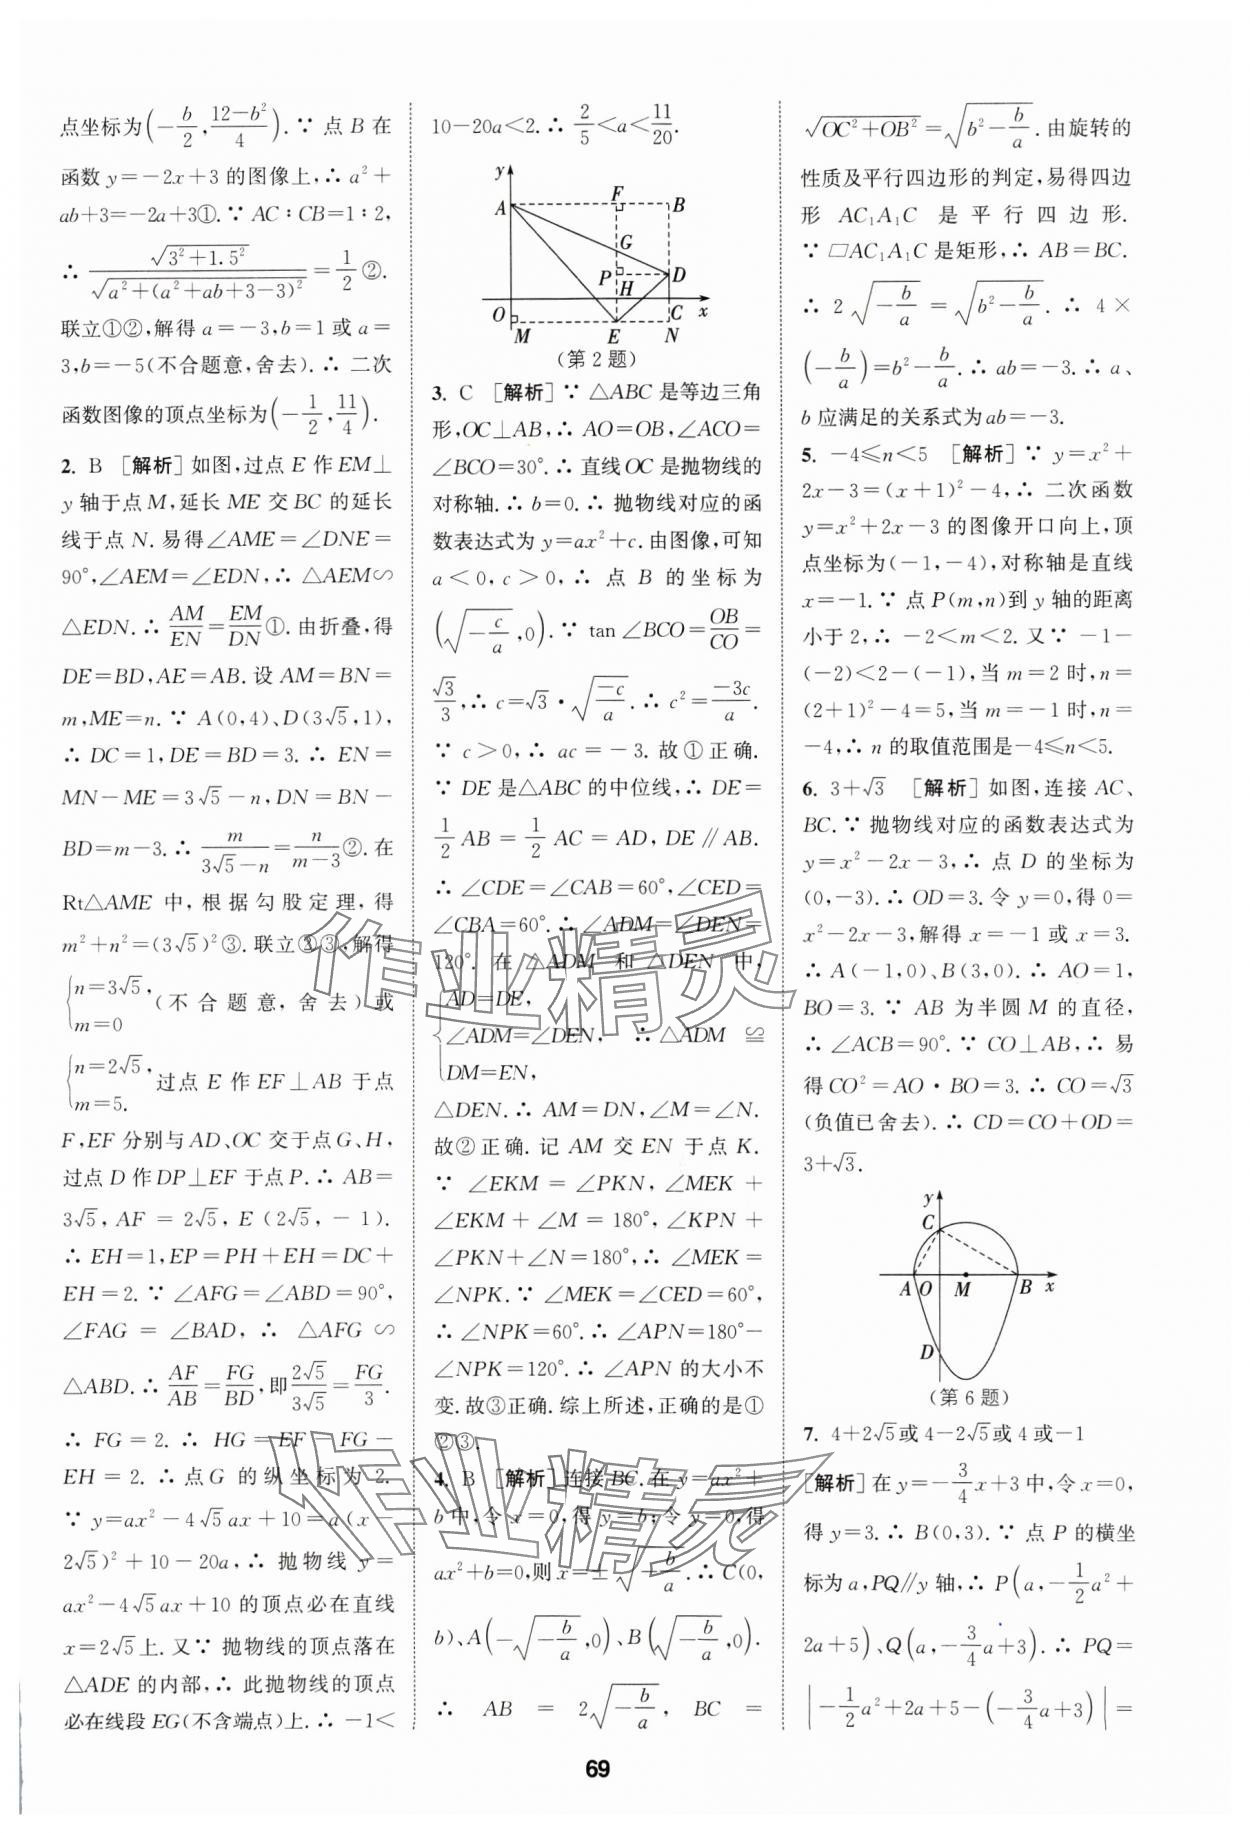 点坐标为(-b/2, (12-b²)/4).∵ 点 B 在
函数 y=-2x+3 的图像上,∴ a²+
ab+3=-2a+3①.∵ AC∶CB=1∶2,
∴ √(3²+1.5²)/√(a²+(a²+ab+3-3)²)=1/2②.
联立①②,解得 a=-3,b=1 或 a=
3,b=-5(不合题意,舍去).∴ 二次
函数图像的顶点坐标为(-1/2, 11/4).
2. B [解析]如图,过点 E 作 EM⊥
y 轴于点 M,延长 ME 交 BC 的延长
线于点 N.易得∠AME=∠DNE=
90°,∠AEM=∠EDN,∴ △AEM∽
△EDN.∴ AM/EN=EM/DN①.由折叠,得
DE=BD,AE=AB.设 AM=BN=
m,ME=n.∵ A(0,4)、D(3√5,1),
∴ DC=1,DE=BD=3.∴ EN=
MN-ME=3√5-n,DN=BN-
BD=m-3.∴ m/(3√5-n)=n/(m-3)②.在
Rt△AME 中,根据勾股定理,得
m²+n²=(3√5)²③.联立②③,解得
{n=3√5, m=0 (不合题意,舍去)或
{n=2√5, m=5. 过点 E 作 EF⊥AB 于点
F,EF 分别与 AD、OC 交于点 G、H,
过点 D 作 DP⊥EF 于点 P.∴ AB=
3√5,AF=2√5,E(2√5,-1).
∴ EH=1,EP=PH+EH=DC+
EH=2.∵ ∠AFG=∠ABD=90°,
∠FAG=∠BAD,∴ △AFG∽
△ABD.∴ AF/AB=FG/BD,即2√5/3√5=FG/3.
∴ FG=2.∴ HG=EF-FG-
EH=2.∴ 点 G 的纵坐标为 2.
∵ y=ax²-4√5ax+10=a(x-
2√5)²+10-20a,∴ 抛物线 y=
ax²-4√5ax+10 的顶点必在直线
x=2√5上.又∵ 抛物线的顶点落在
△ADE 的内部,∴ 此抛物线的顶点
必在线段 EG(不含端点)上.∴ -1<
10-20a<2.∴ 2/5<a<11/20.
y
A
F
B
G
P
D
H
O
C
x
M
E
N
(第 2 题)
3. C [解析]∵ △ABC 是等边三角
形,OC⊥AB,∴ AO=OB,∠ACO=
∠BCO=30°.∴ 直线 OC 是抛物线的
对称轴.∴ b=0.∴ 抛物线对应的函
数表达式为 y=ax²+c.由图像,可知
a<0,c>0,∴ 点 B 的坐标为
(√(-c/a),0).∵ tan∠BCO=OB/CO=
√3/3,∴ c=√3·√(-c/a).∴ c²=-3c/a.
∵ c>0,∴ ac=-3.故①正确.
∵ DE 是△ABC 的中位线,∴ DE=
1/2 AB=1/2 AC=AD,DE∥AB.
∴ ∠CDE=∠CAB=60°,∠CED=
∠CBA=60°.∴ ∠ADM=∠DEN=
120°.在 △ADM 和 △DEN 中,
{AD=DE,
∠ADM=∠DEN, ∴ △ADM≌
DM=EN,
△DEN.∴ AM=DN,∠M=∠N.
故②正确.记 AM 交 EN 于点 K.
∵ ∠EKM=∠PKN,∠MEK+
∠EKM+∠M=180°,∠KPN+
∠PKN+∠N=180°,∴ ∠MEK=
∠NPK.∵ ∠MEK=∠CED=60°,
∴ ∠NPK=60°.∴ ∠APN=180°-
∠NPK=120°.∴ ∠APN 的大小不
变.故③正确.综上所述,正确的是①
②③.
4. B [解析]连接 BC.在 y=ax²+
b 中,令 x=0,得 y=b;令 y=0,得
ax²+b=0,则 x=±√(-b/a).∴ C(0,
b)、A(-√(-b/a),0)、B(√(-b/a),0).
∴ AB=2√(-b/a),BC=
√(OC²+OB²)=√(b²-b/a).由旋转的
性质及平行四边形的判定,易得四边
形 AC₁A₁C 是平行四边形.
∵ □AC₁A₁C 是矩形,∴ AB=BC.
∴ 2√(-b/a)=√(b²-b/a).∴ 4×
(-b/a)=b²-b/a.∴ ab=-3.∴ a、
b 应满足的关系式为 ab=-3.
5. -4≤n<5 [解析]∵ y=x²+
2x-3=(x+1)²-4,∴ 二次函数
y=x²+2x-3 的图像开口向上,顶
点坐标为(-1,-4),对称轴是直线
x=-1.∵ 点 P(m,n)到 y 轴的距离
小于 2,∴ -2<m<2.又∵ -1-
(-2)<2-(-1),当 m=2 时,n=
(2+1)²-4=5,当 m=-1 时,n=
-4,∴ n 的取值范围是-4≤n<5.
6. 3+√3 [解析]如图,连接 AC、
BC.∵ 抛物线对应的函数表达式为
y=x²-2x-3,∴ 点 D 的坐标为
(0,-3).∴ OD=3.令 y=0,得 0=
x²-2x-3,解得 x=-1 或 x=3.
∴ A(-1,0)、B(3,0).∴ AO=1,
BO=3.∵ AB 为半圆 M 的直径,
∴ ∠ACB=90°.∵ CO⊥AB,∴ 易
得 CO²=AO·BO=3.∴ CO=√3
(负值已舍去).∴ CD=CO+OD=
3+√3.
y
C
A
O
M
B
x
D
(第 6 题)
7. 4+2√5或 4-2√5或 4 或-1
[解析]在 y=-3/4x+3 中,令 x=0,
得 y=3.∴ B(0,3).∵ 点 P 的横坐
标为 a,PQ∥y 轴,∴ P(a,-1/2a²+
2a+5)、Q(a,-3/4a+3).∴ PQ=
|-1/2a²+2a+5-(-3/4a+3)|=
69
作业精灵
作业精灵